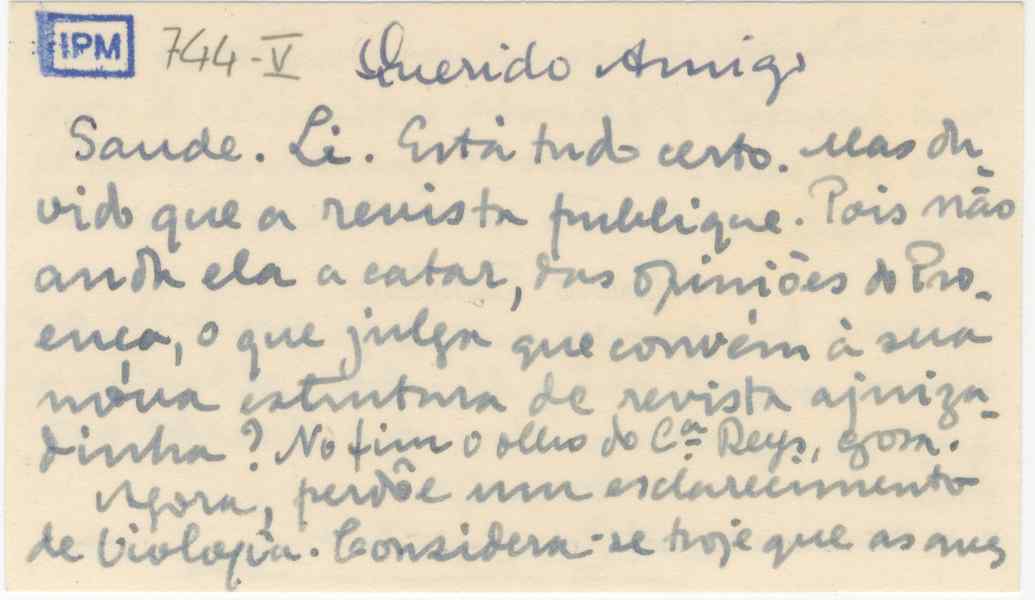 IPM 744-V Querido Amigo
Saude. Li. Está tudo certo. Mas du-
vido que a revista publique. Pois não
anda ela a catar, das opiniões do Pro-
ença, o que julga que convém à sua
nóva estrutura de revista ajuiza-
dinha? No fim o olho do Cª Reys, gosa.
Agora, perdôe um esclarecimento
de biologia. Considera-se hoje que as